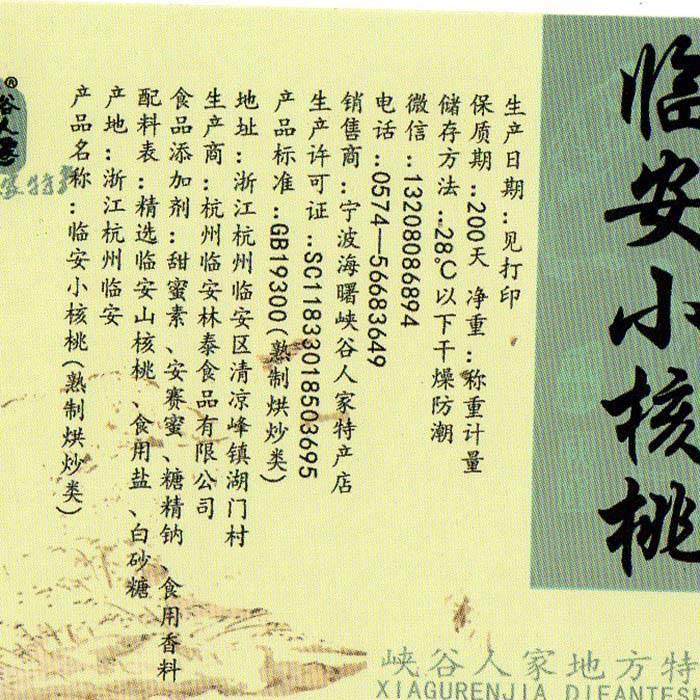 谷人家
®
产品名称：临安小核桃(熟制烘炒类)
产地：浙江杭州临安
配料表：精选临安山核桃、食用盐、白砂糖
食品添加剂：甜蜜素、安赛蜜、糖精钠、食用香料
生产商：杭州临安林泰食品有限公司
地址：浙江杭州临安区清凉峰镇湖门村
产品标准：GB19300(熟制烘炒类)
生产许可证：SC11833018503695
销售商：宁波海曙峡谷人家特产店
电话：0574—56683649
微信：13208086894
储存方法：28℃以下干燥防潮
保质期：200天 净重：称重计量
生产日期：见打印
临安小核桃
峡谷人家地方特
XIAGURENJIA DIFANTES